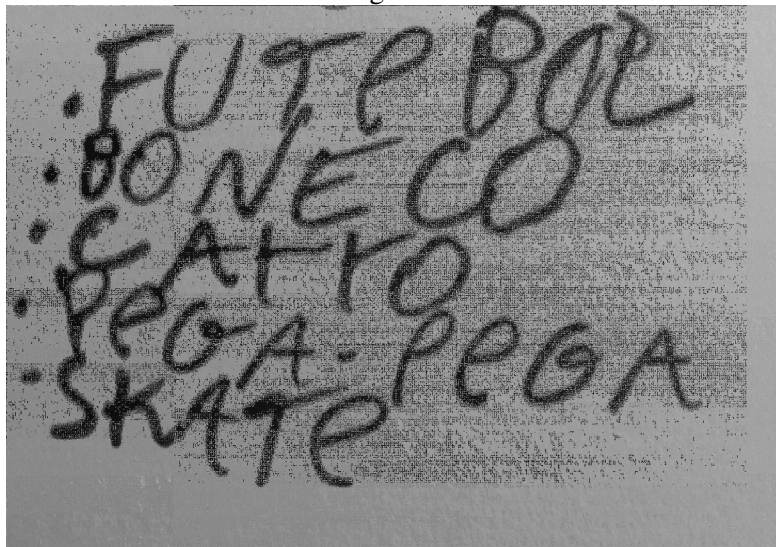 • FUTeBOL
• BONECO
• CArrO
• PeGA-PeGA
• SKATe